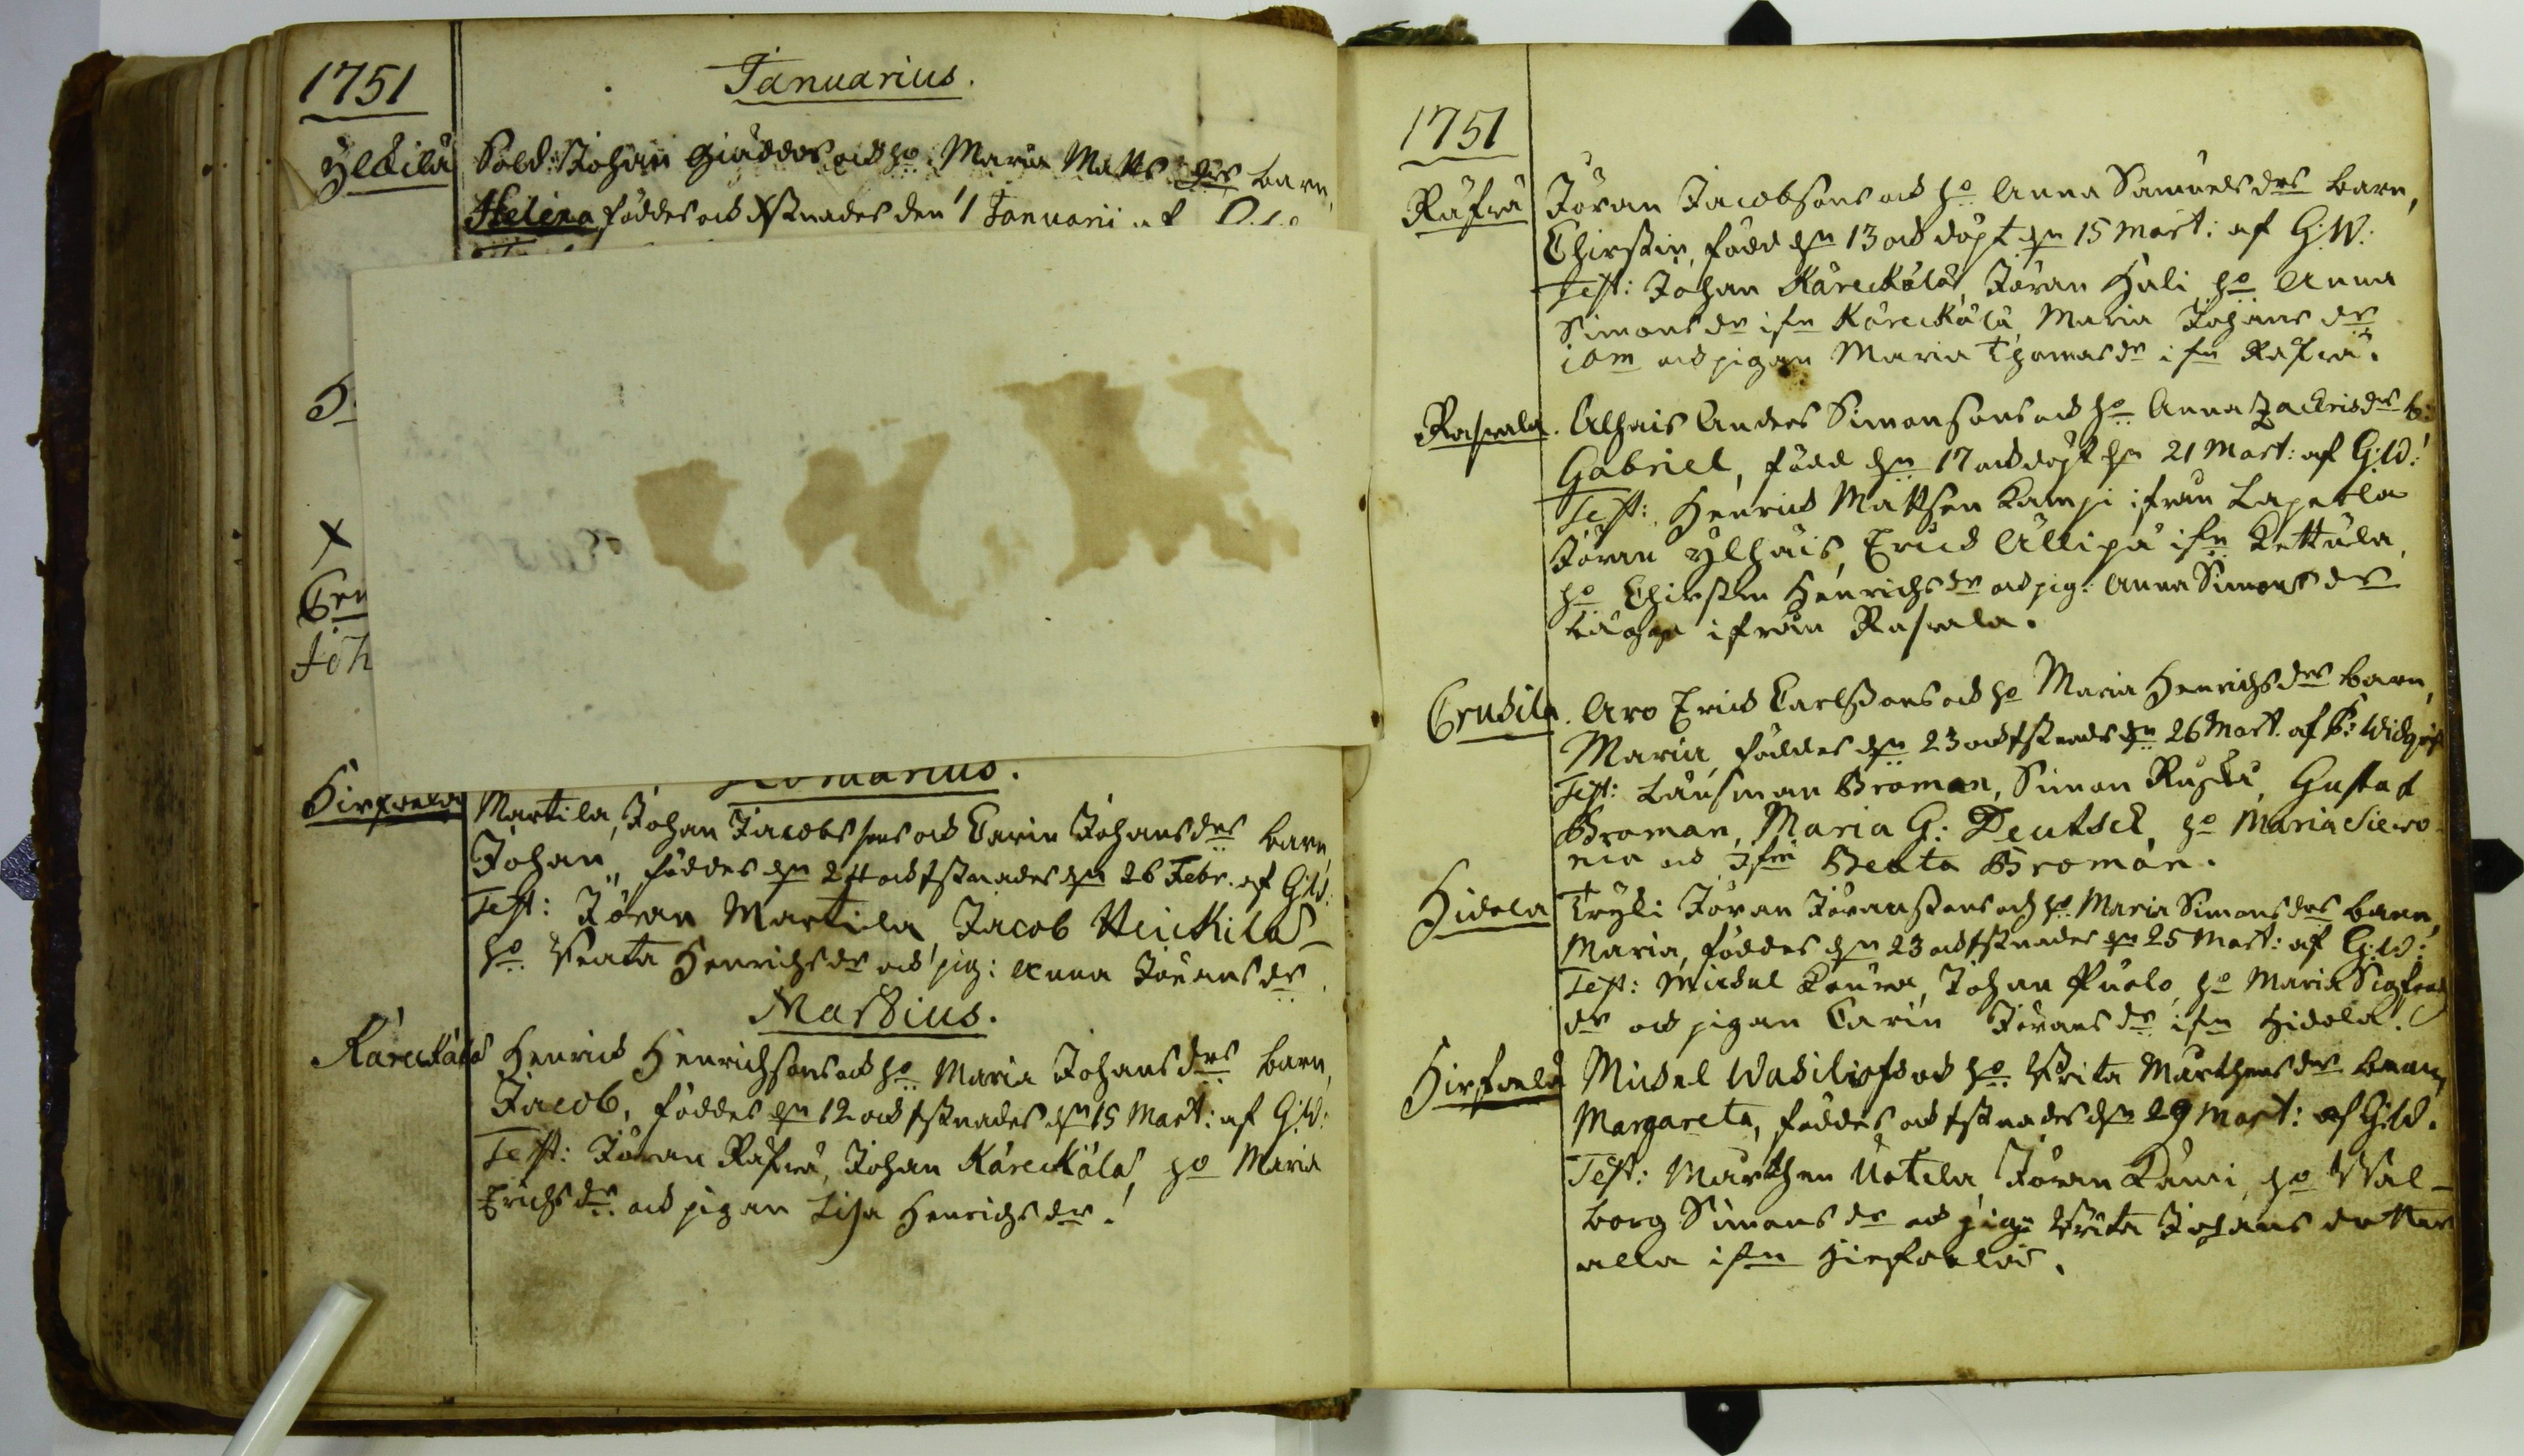 1751
Januarius.
Yldilä Sold: Johan Giäddes och ho: Maria Matts drs barn,
Helena, föddes och Xstnades den 1 Januarii af
X
Joh
Hirfvela Martila, Johan Jacobssons och Carin Johansdrs barn
Johan, föddes dn 24 och Xstnades dn 26 Febr. af G:W:
Test: Jöran Martila, Jacob Heickilä
ho Beata Henrichsdr och pig: Anna Jöransdr
Martius.
Käreckälä Henrich Henrichsons och ho Maria Johansdrs barn,
Jacob, föddes dn 12 och Xstnades dn 15 Mart: af G:W:
Test: Jöran Räfvä, Johan Käreckälä, ho Maria
Erichsdr och pigan Lisa Henrichsdr.
1751
Räfvä Jöran Jacobsons och ho Anna Samuelsdrs barn,
Chirstin, född dn 13 och döpt dn 15 Mart: af G:W:
Test: Johan Käreckälä, Jöran Hali, ho Anna
Simonsdr ifn Käreckälä, Maria Johansdr
och pigan Maria Thomasdr ifn Räfvä.
Rasvala. Alhais Anders Simonsons och ho Anna Zachrisdrs b:
Gabriel, född dn 17 och döpt dn 21 Mart: af G:W:
Test: Henrich Mattson Kampi ifrån Laperla
Jöran Ylhäis, Erich Ällipä ifn Kettula,
ho Chirstin Henrichsdr och pig: Anna Simonsdr
bägge ifrån Rasvala.
Crudila. Aro Erich Carlssons och ho Maria Henrichsdrs barn,
Maria, föddes dn 23 och Xstnades dn 26 Mart. af
Test: Länsman Broman, Simon Gustaf
Broman, Maria G: Deutsch, ho Maria
och Jfru Beata Broman.
Hidola Tryki Jöran Jöranssons och ho Maria Simonsdrs barn,
Maria, föddes dn 23 och Xstnades dn 25 Mart: af G:W:
Test: Michel Johan Puolo, ho Maria Sigfreds
dr och pigan Carin Jöransdr ifn Hidola.
Hirfvelä Michel Wasiliofs och ho Brita Mårthensdrs barn,
Margareta, föddes och Xstnades dn 29 Mart: af G:W.
Test: Mårthen Uotila, Jöran ho Wal-
borg Simonsdr och pig: Brita Johans dotter
alla ifn Hirfvelä.